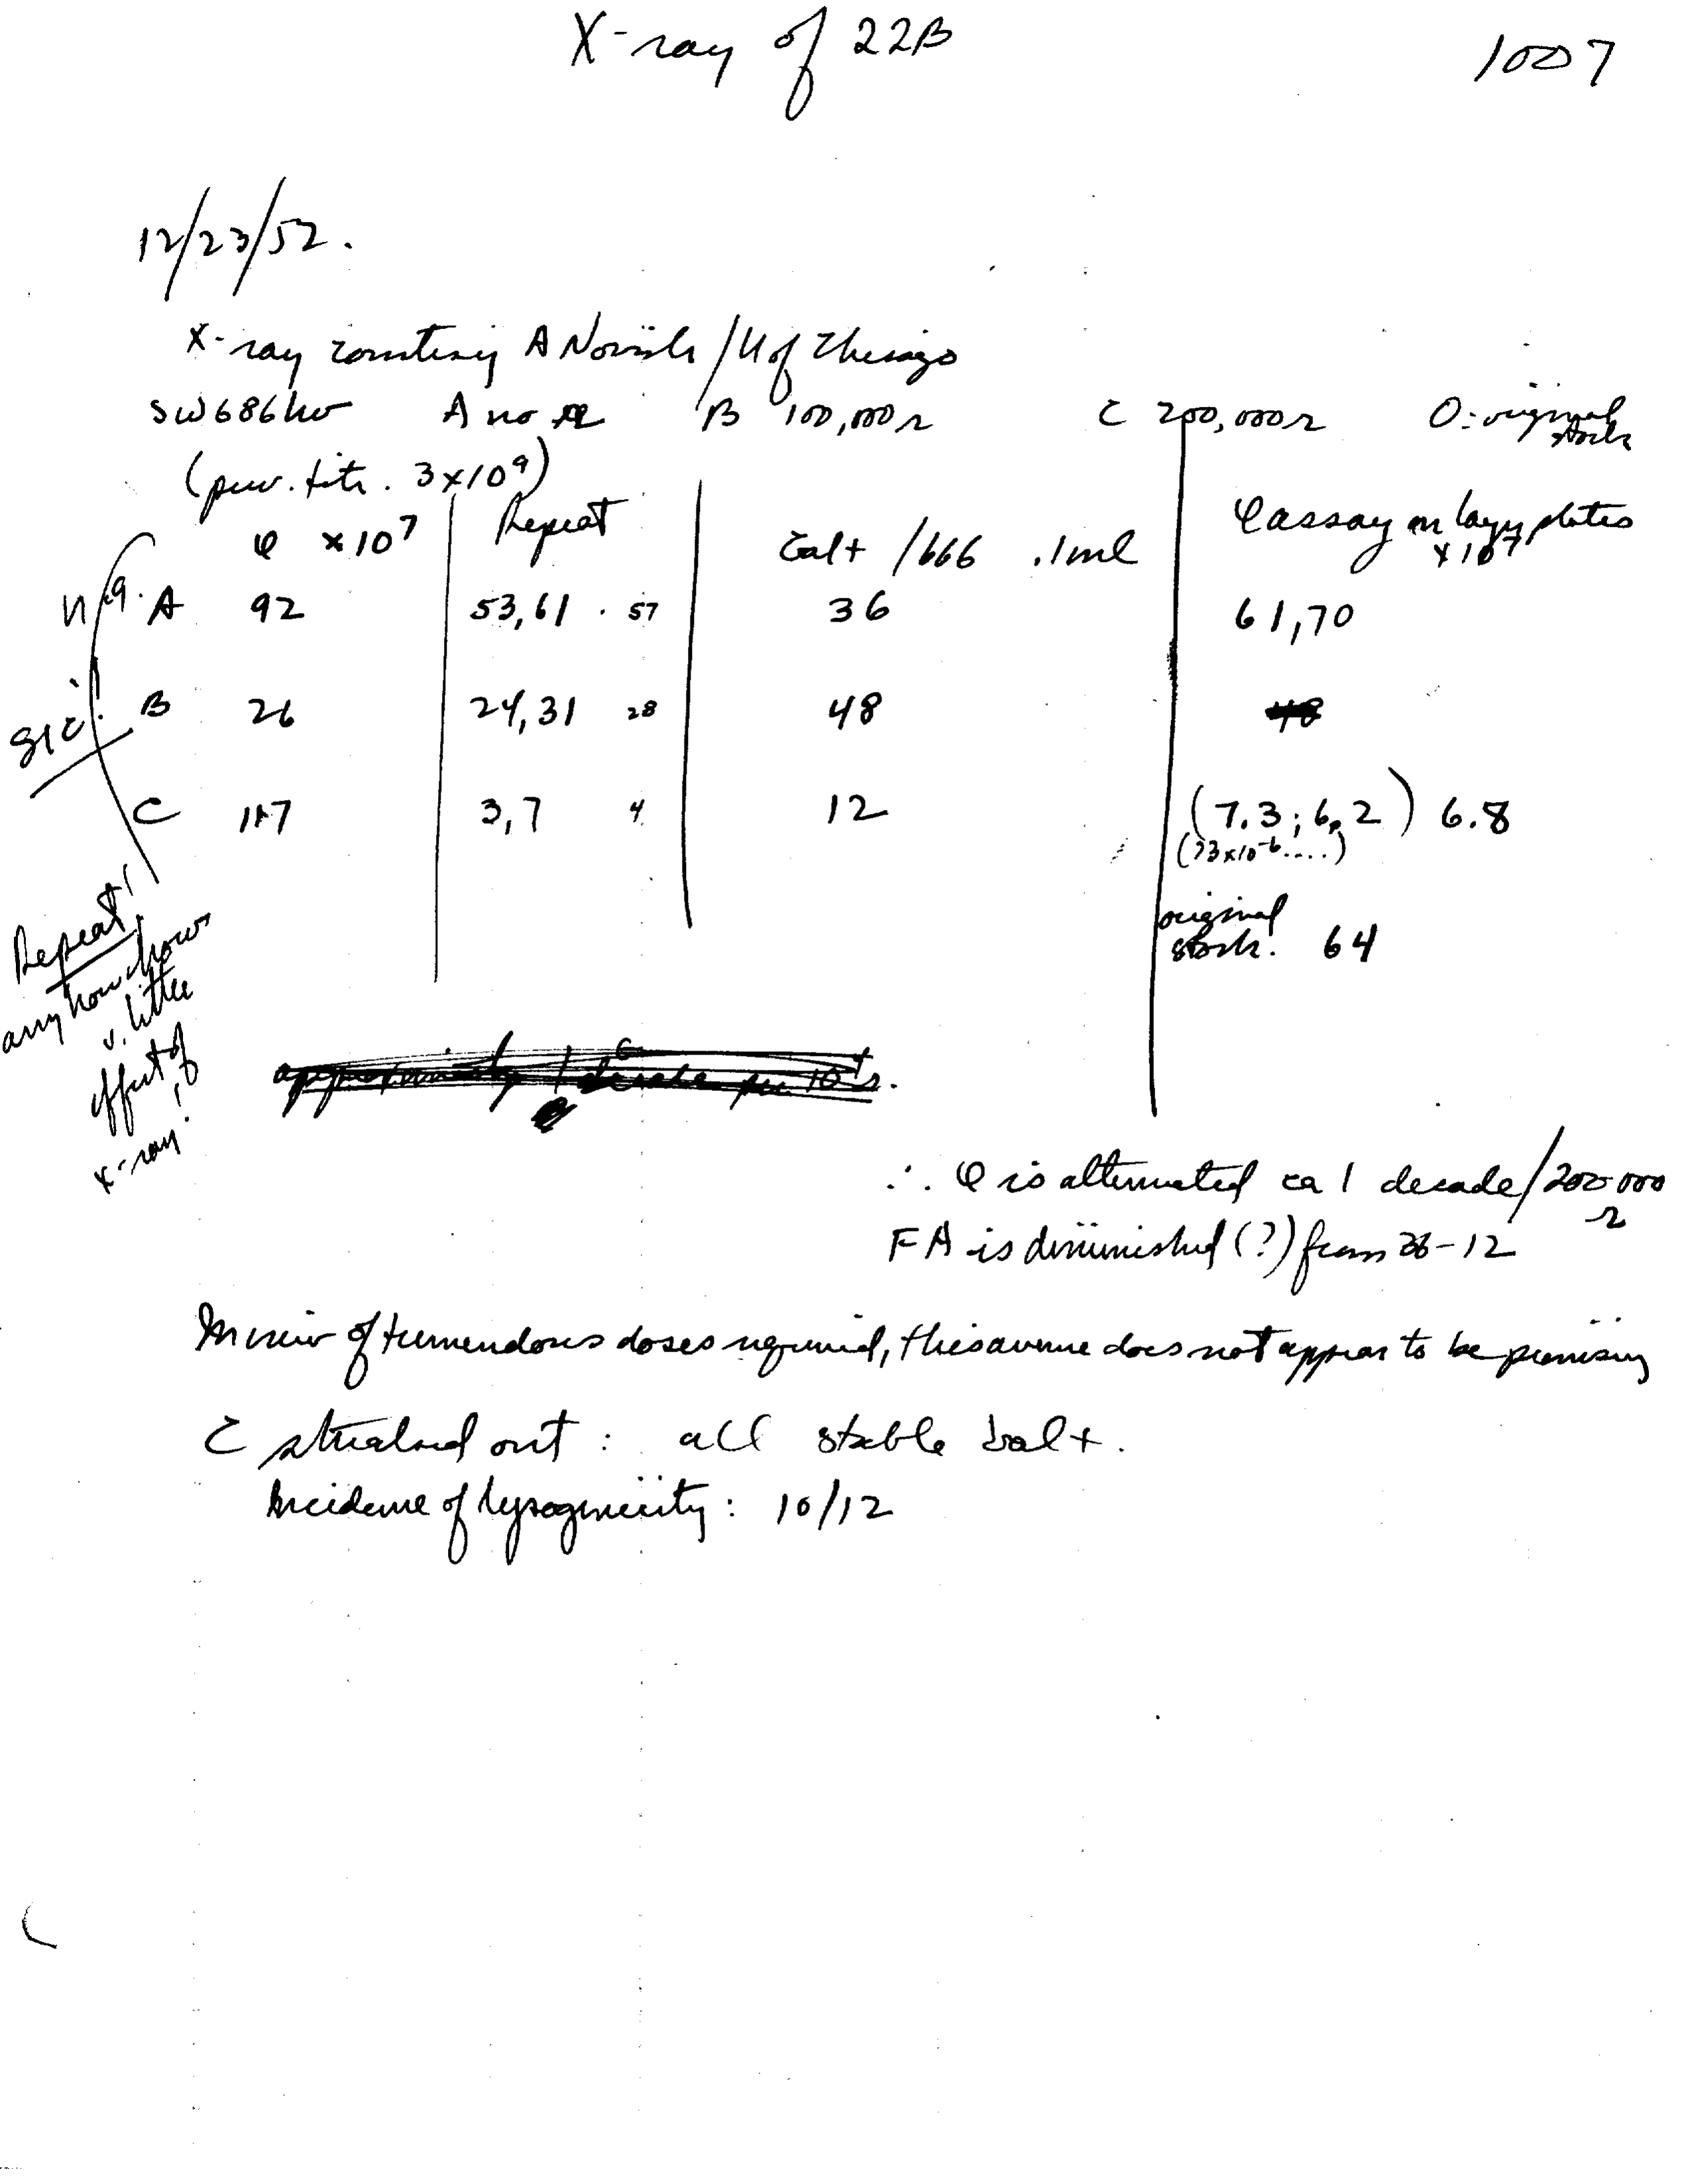 X-ray of 22B
1007
12/23/52.
X-ray courtesy A Novick / U of Chicago
SW686 A no r B 100,000 r C 200,000 r O: original stock
(prev. titr. 3x10^9)
φ x10^7 Repeat Gal+ /666 .1ml φ assay on layer plates x10^7
n.g. A 92 53,61 . 57 36 61,70
sic! B 26 24,31 28 48
C 117 3,7 4 12 (7.3; 6.2) 6.8
(73x10^-6....)
original
stock: 64
Repeat!
anyhow shows
v. little
effect of
x-ray!
approximately 1 decade per 10 r.
∴ φ is attenuated ca 1 decade/200 000 r
FA is diminished (?) from 36-12
In view of tremendous doses required, this avenue does not appear to be promising
C streaked out: all stable Gal+.
Incidence of lysogenicity: 10/12